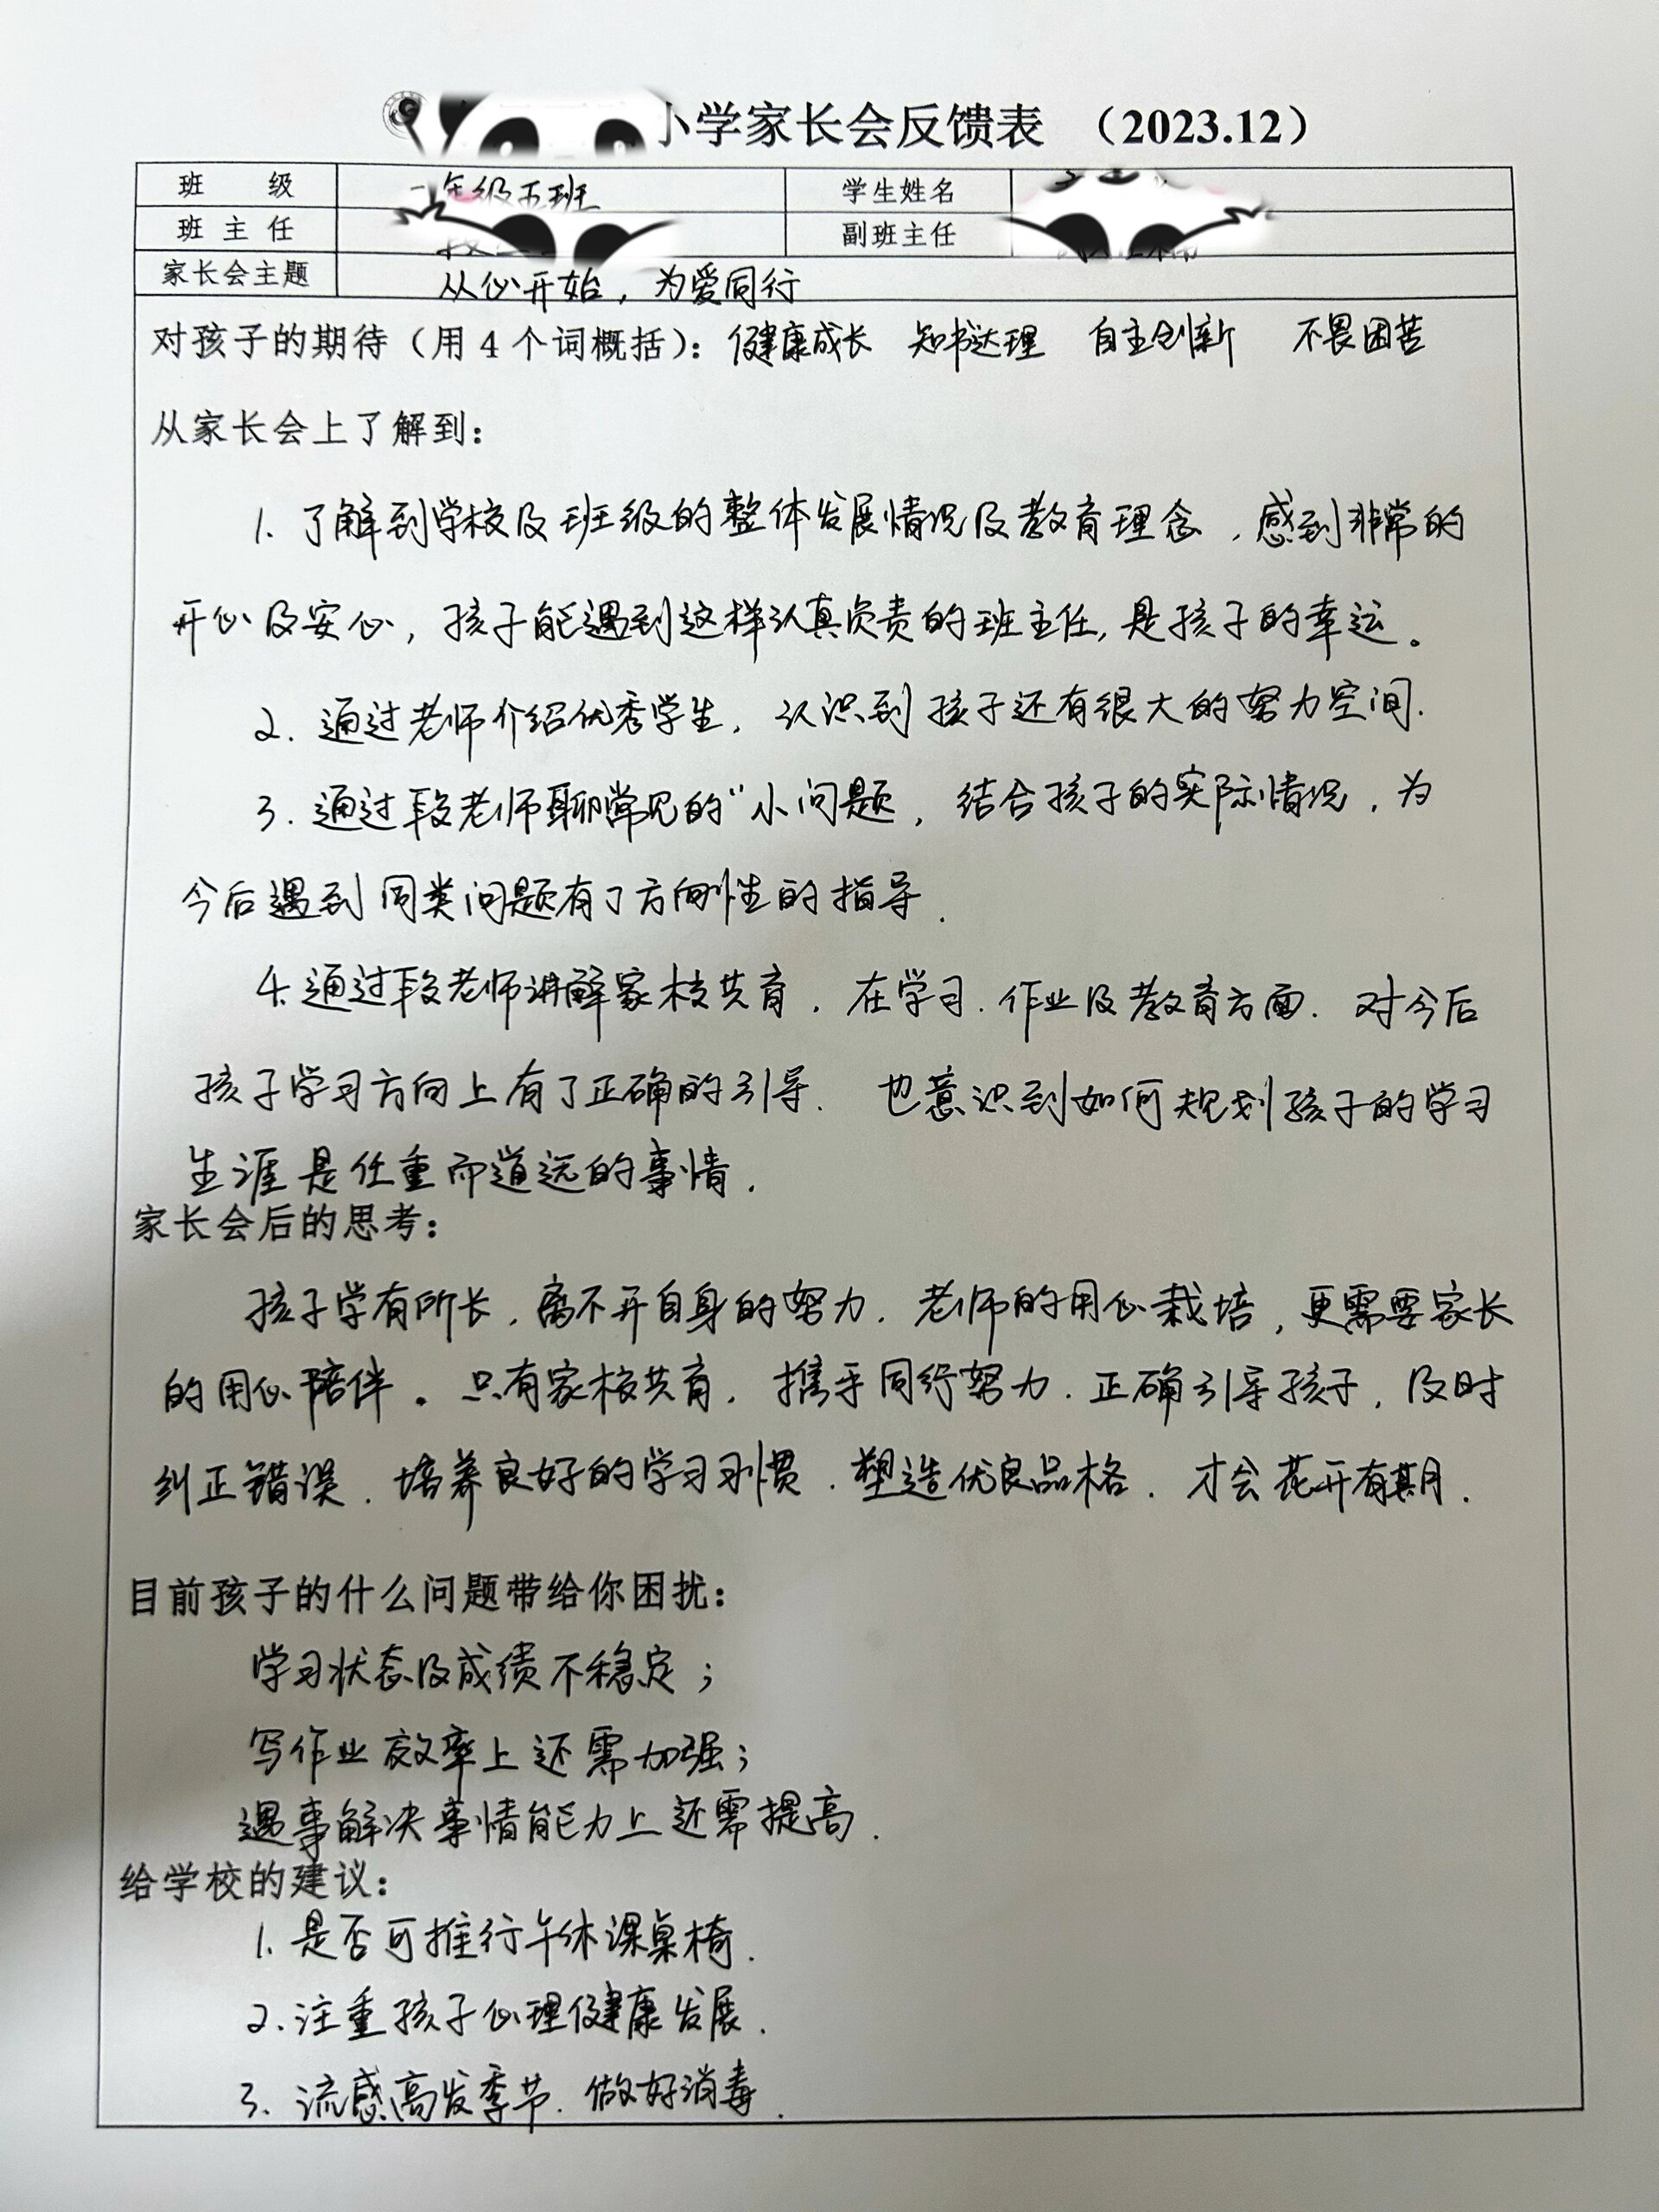 小学家长会反馈表 （2023.12）
班 级 年级五班 学生姓名
班 主 任 副班主任
家长会主题 从心开始，为爱同行
对孩子的期待（用 4 个词概括）：健康成长 知书达理 自主创新 不畏困苦
从家长会上了解到：
1. 了解到学校及班级的整体发展情况及教育理念，感到非常的
开心及安心，孩子能遇到这样认真负责的班主任，是孩子的幸运。
2. 通过老师介绍优秀学生，认识到孩子还有很大的努力空间.
3. 通过段老师聊常见的“小问题，结合孩子的实际情况，为
今后遇到同类问题有了方向性的指导.
4. 通过段老师讲解家校共育，在学习.作业及教育方面.对今后
孩子学习方向上有了正确的引导. 也意识到如何规划孩子的学习
生涯是任重而道远的事情.
家长会后的思考：
孩子学有所长，离不开自身的努力.老师的用心栽培，更需要家长
的用心陪伴。只有家校共育，携手同行努力.正确引导孩子，及时
纠正错误.培养良好的学习习惯.塑造优良品格.才会花开有期.
目前孩子的什么问题带给你困扰：
学习状态及成绩不稳定；
写作业效率上还需加强；
遇事解决事情能力上还需提高.
给学校的建议：
1. 是否可推行午休课桌椅.
2. 注重孩子心理健康发展.
3. 流感高发季节.做好消毒.